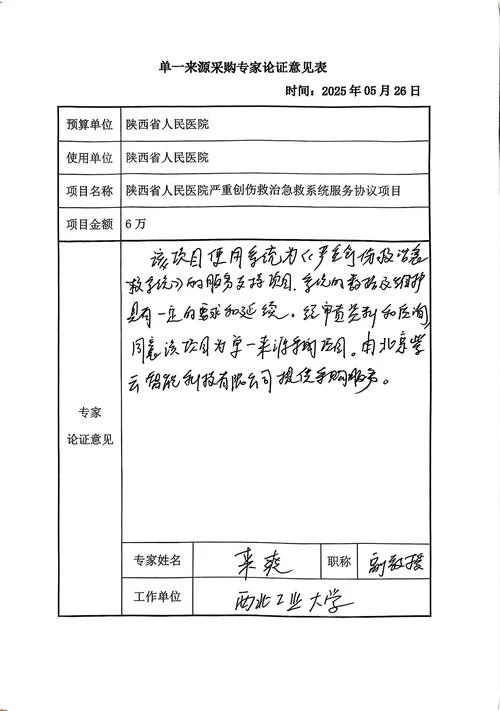 单一来源采购专家论证意见表
时间：2025年05月26日
预算单位 陕西省人民医院
使用单位 陕西省人民医院
项目名称 陕西省人民医院严重创伤救治急救系统服务协议项目
项目金额 6万
该项目使用系统为《严重创伤救治急
救系统》的服务支持项目，系统的数据及维护
具有一定的要求和延续，经审首资料和应询
同意该项目为单一来源采购项目。由北京
云智能科技有限公司提供采购服务。
专家
论证意见
专家姓名 来爽 职称 副教授
工作单位 西北工业大学